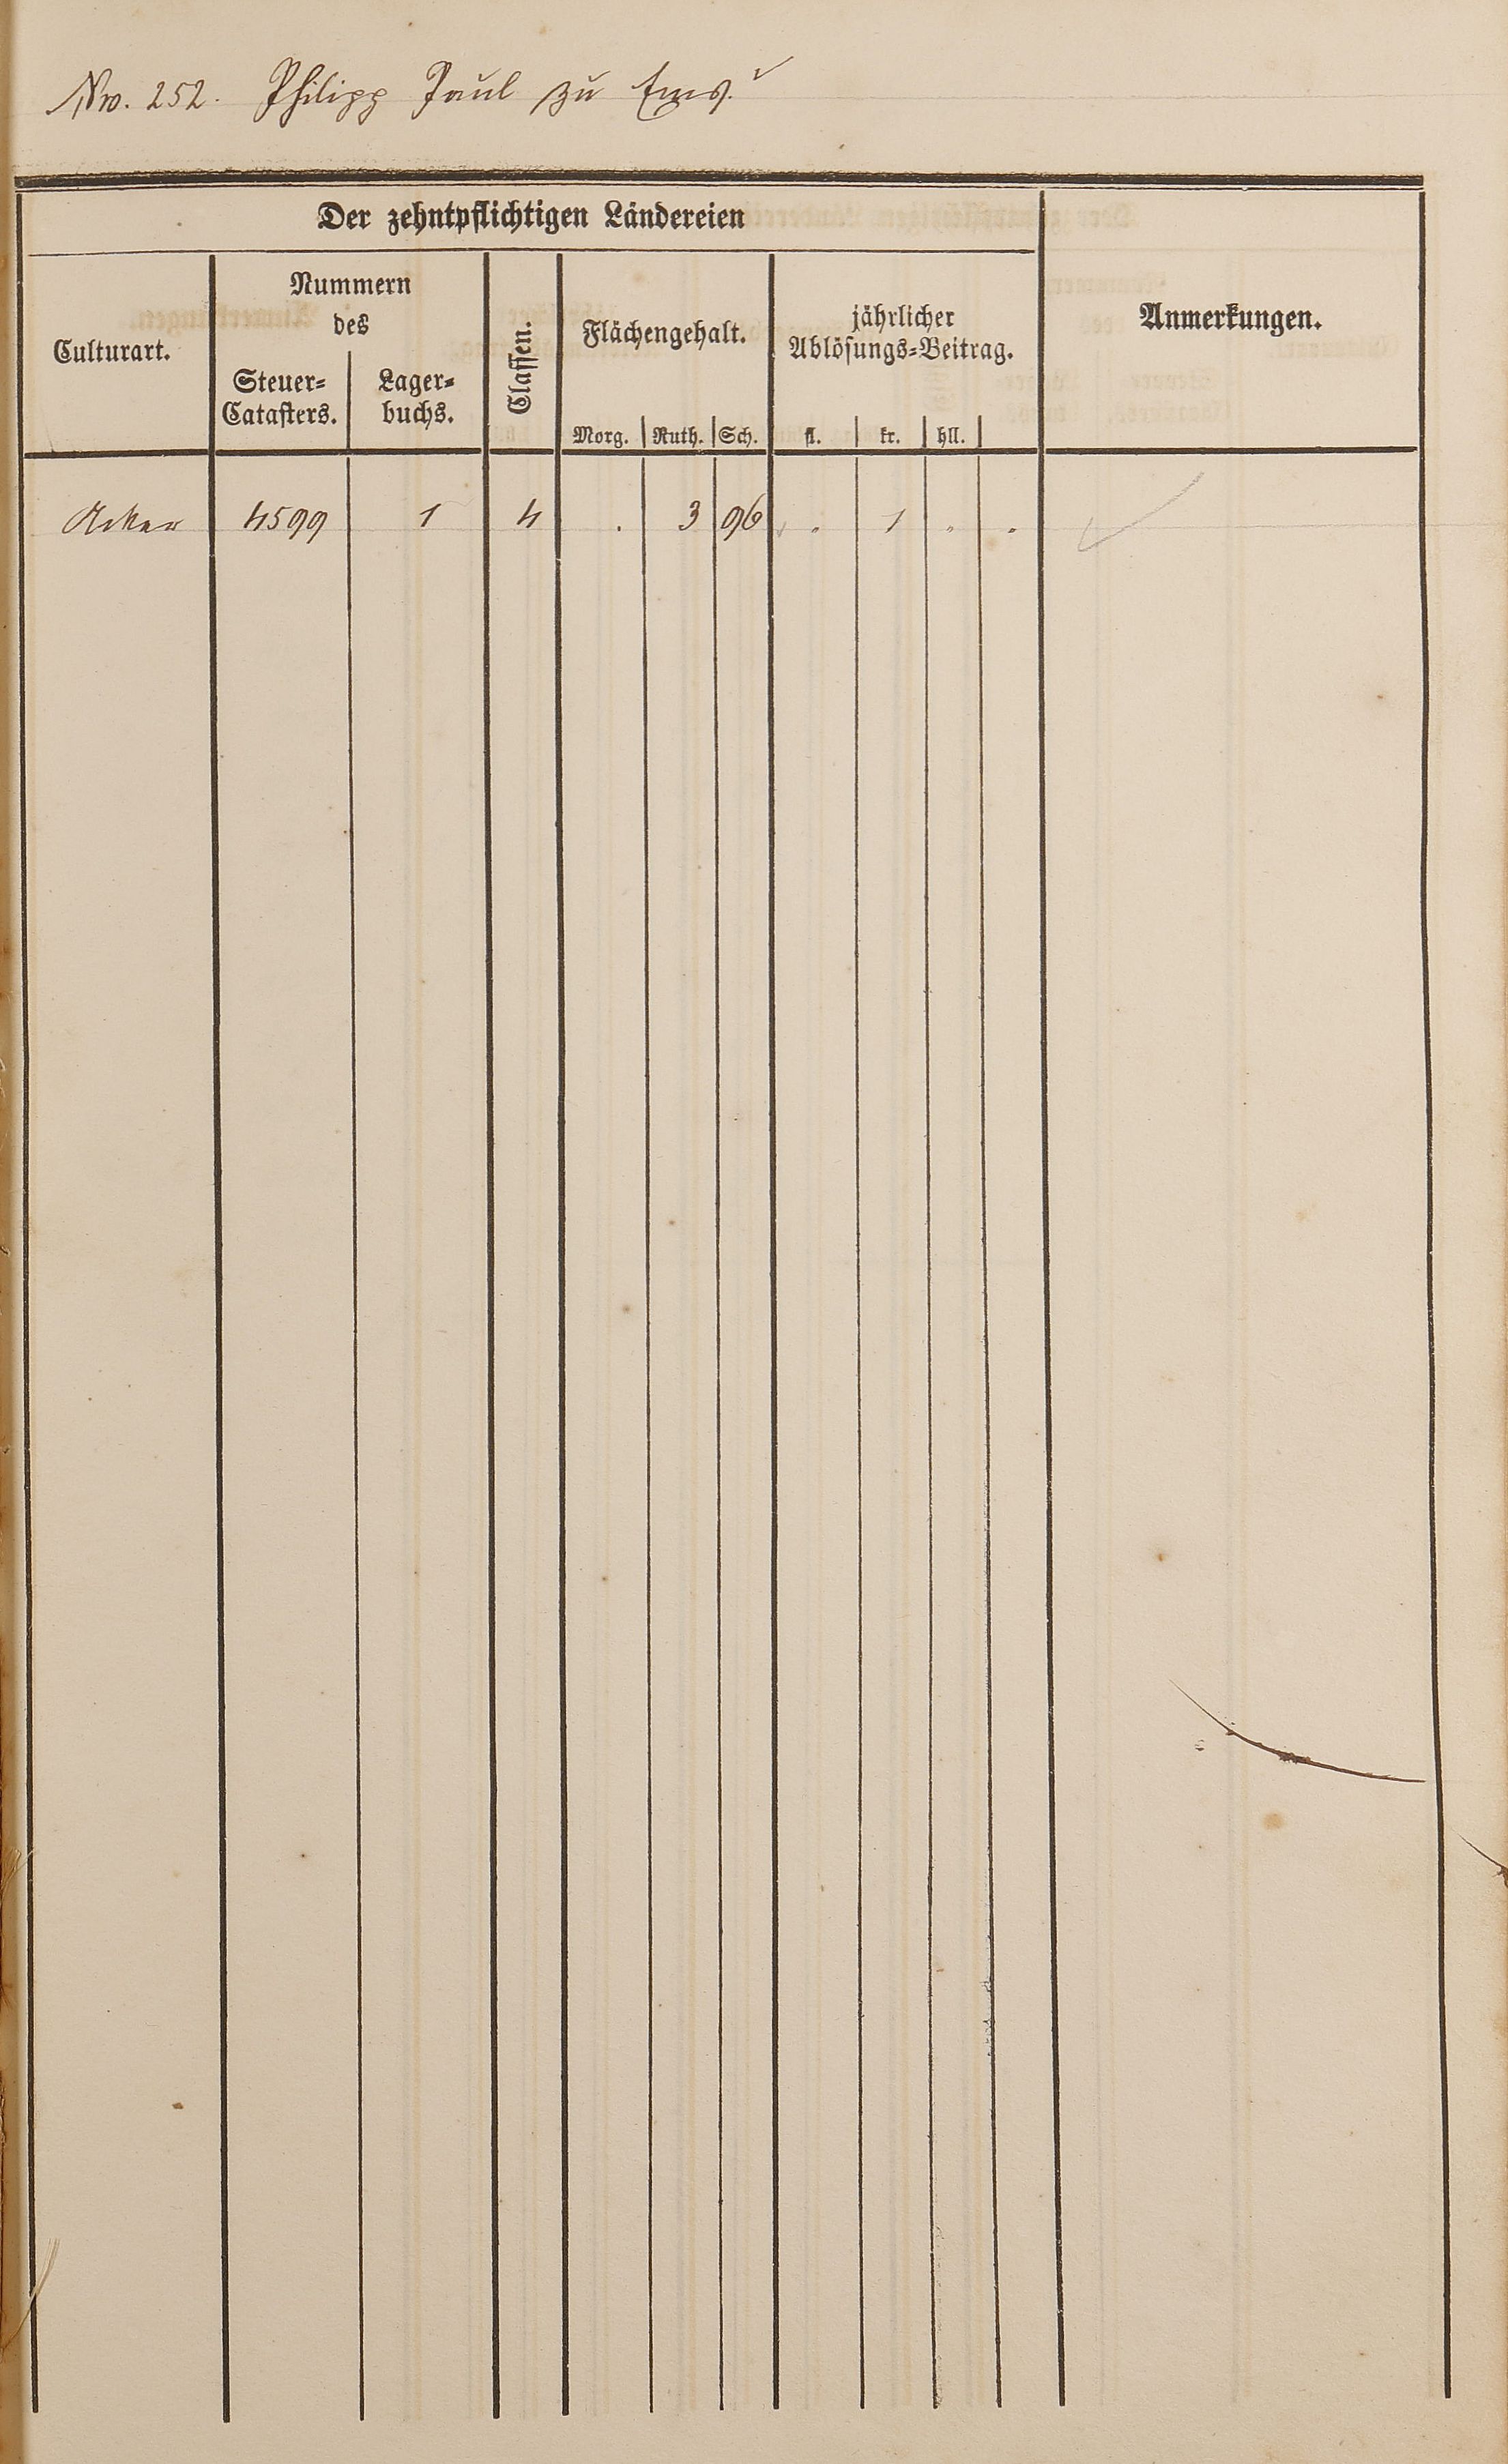 Nro. 252. Philipp Paul zu Ems.
Der zehntpflichtigen Ländereien
Culturart.
Nummern
des
Steuer-
Catasters.
Lager-
buchs.
Classen.
Flächengehalt.
Morg. Ruth. Sch.
jährlicher
Ablösungs-Beitrag.
fl. kr. hll.
Anmerkungen.
Acker 4599 1 4 . 3 96 . 1 . .